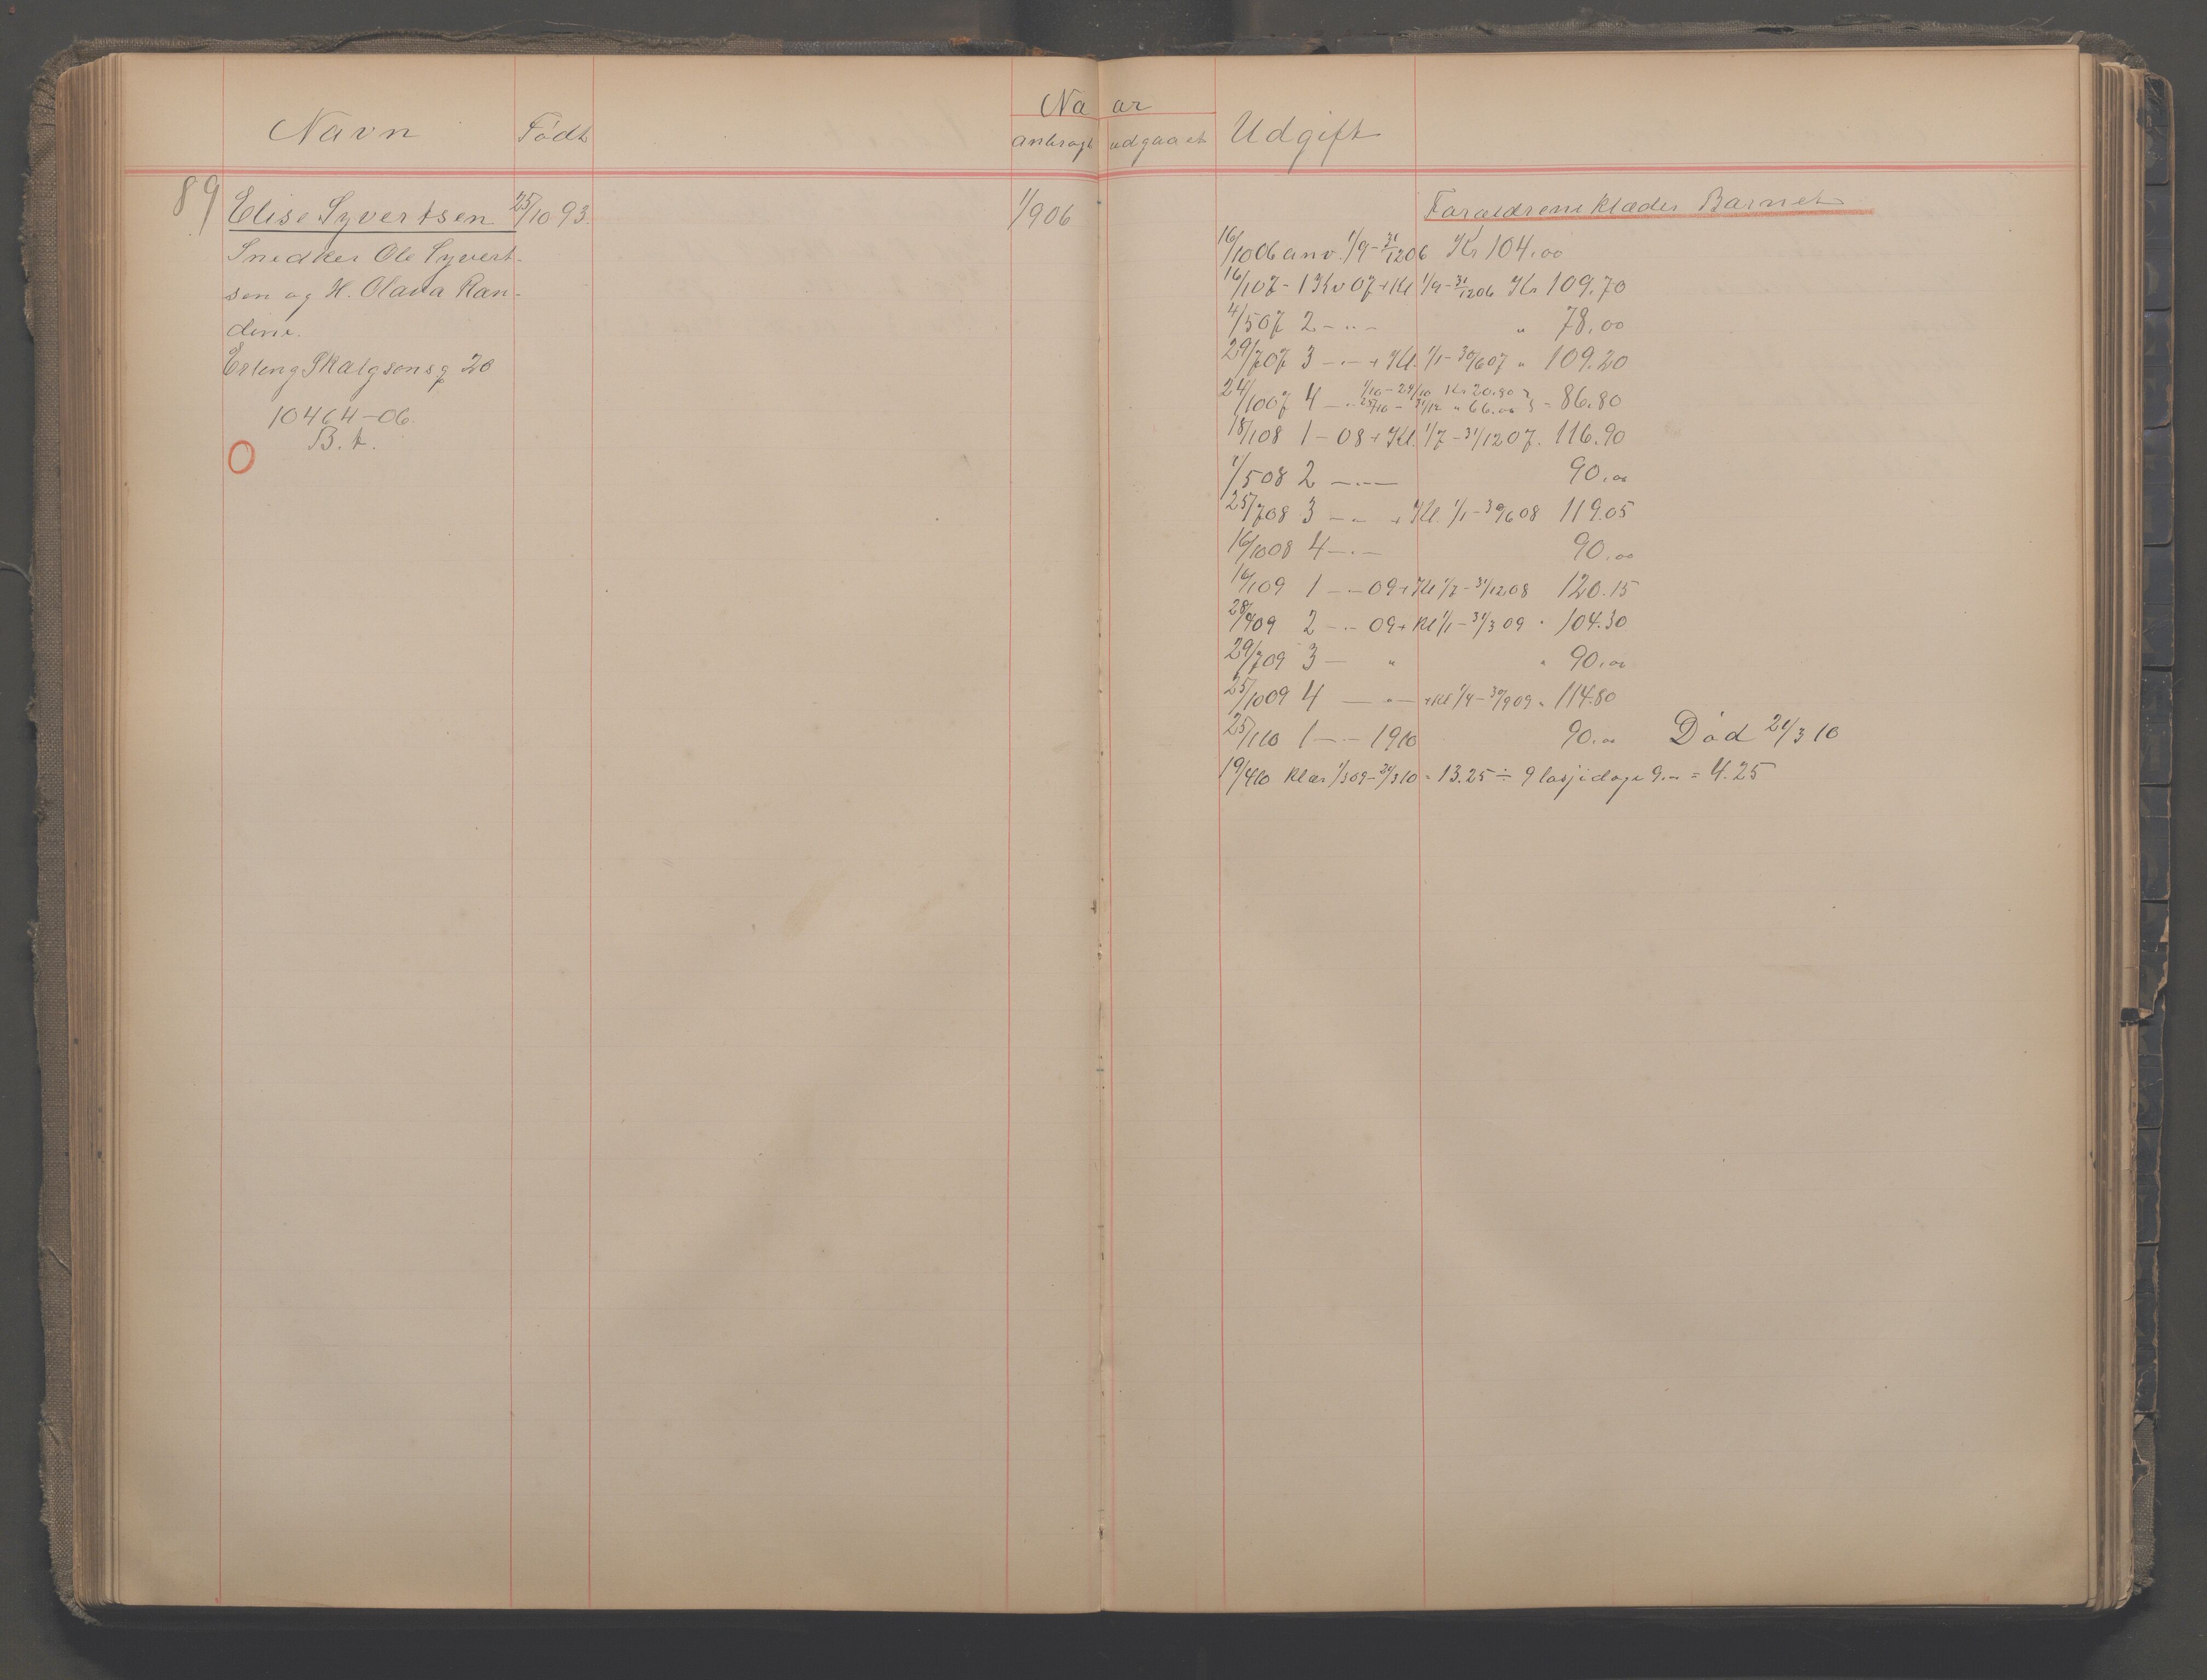 Navn Født Na ar
anbragt udgaaet Udgift
89 Elise Syvertsen 25/10 93. 1/9 06
Snedker Ole Syvert-
sen og H. Olava Ran-
dine.
Erling Skalgsonsg 20
10464-06.
B. t.
O
Forældrene klæder Barnet
16/10 06 anv. 1/9 - 31/12 06 Kr 104.00
16/1 07 - 1 Kv 07 + Kl 1/9 - 31/12 06 Kr 109.70
4/5 07 2 - " - " 78.00
29/7 07 3 - " - + Kl. 1/1 - 30/6 07 " 109.20
24/10 07 4 - " 1/10 - 24/10 Kr 20.80
25/10 - 31/12 " 66.00 } - 86.80
18/1 08 1 - 08 + Kl. 1/7 - 31/12 07. 116.90
1/5 08 2 - " - 90.00
25/7 08 3 - " + Kl. 1/1 - 30/6 08 119.05
16/10 08 4 - " - 90.00
16/1 09 1 - " - 09 + Kl 1/7 - 31/12 08 120.15
28/4 09 2 - " - 09 + Kl 1/1 - 31/3 09 " 104.30
29/7 09 3 - " " 90.00
25/10 09 4 - " - + Kl 1/4 - 30/9 09 " 114.80
25/1 10 1 - " - 1910 90.00 Død 21/3 10
19/4 10 Klær 1/3 09 - 31/3 10 " 13.25 ÷ 9 losjidage 9.00 = 4.25